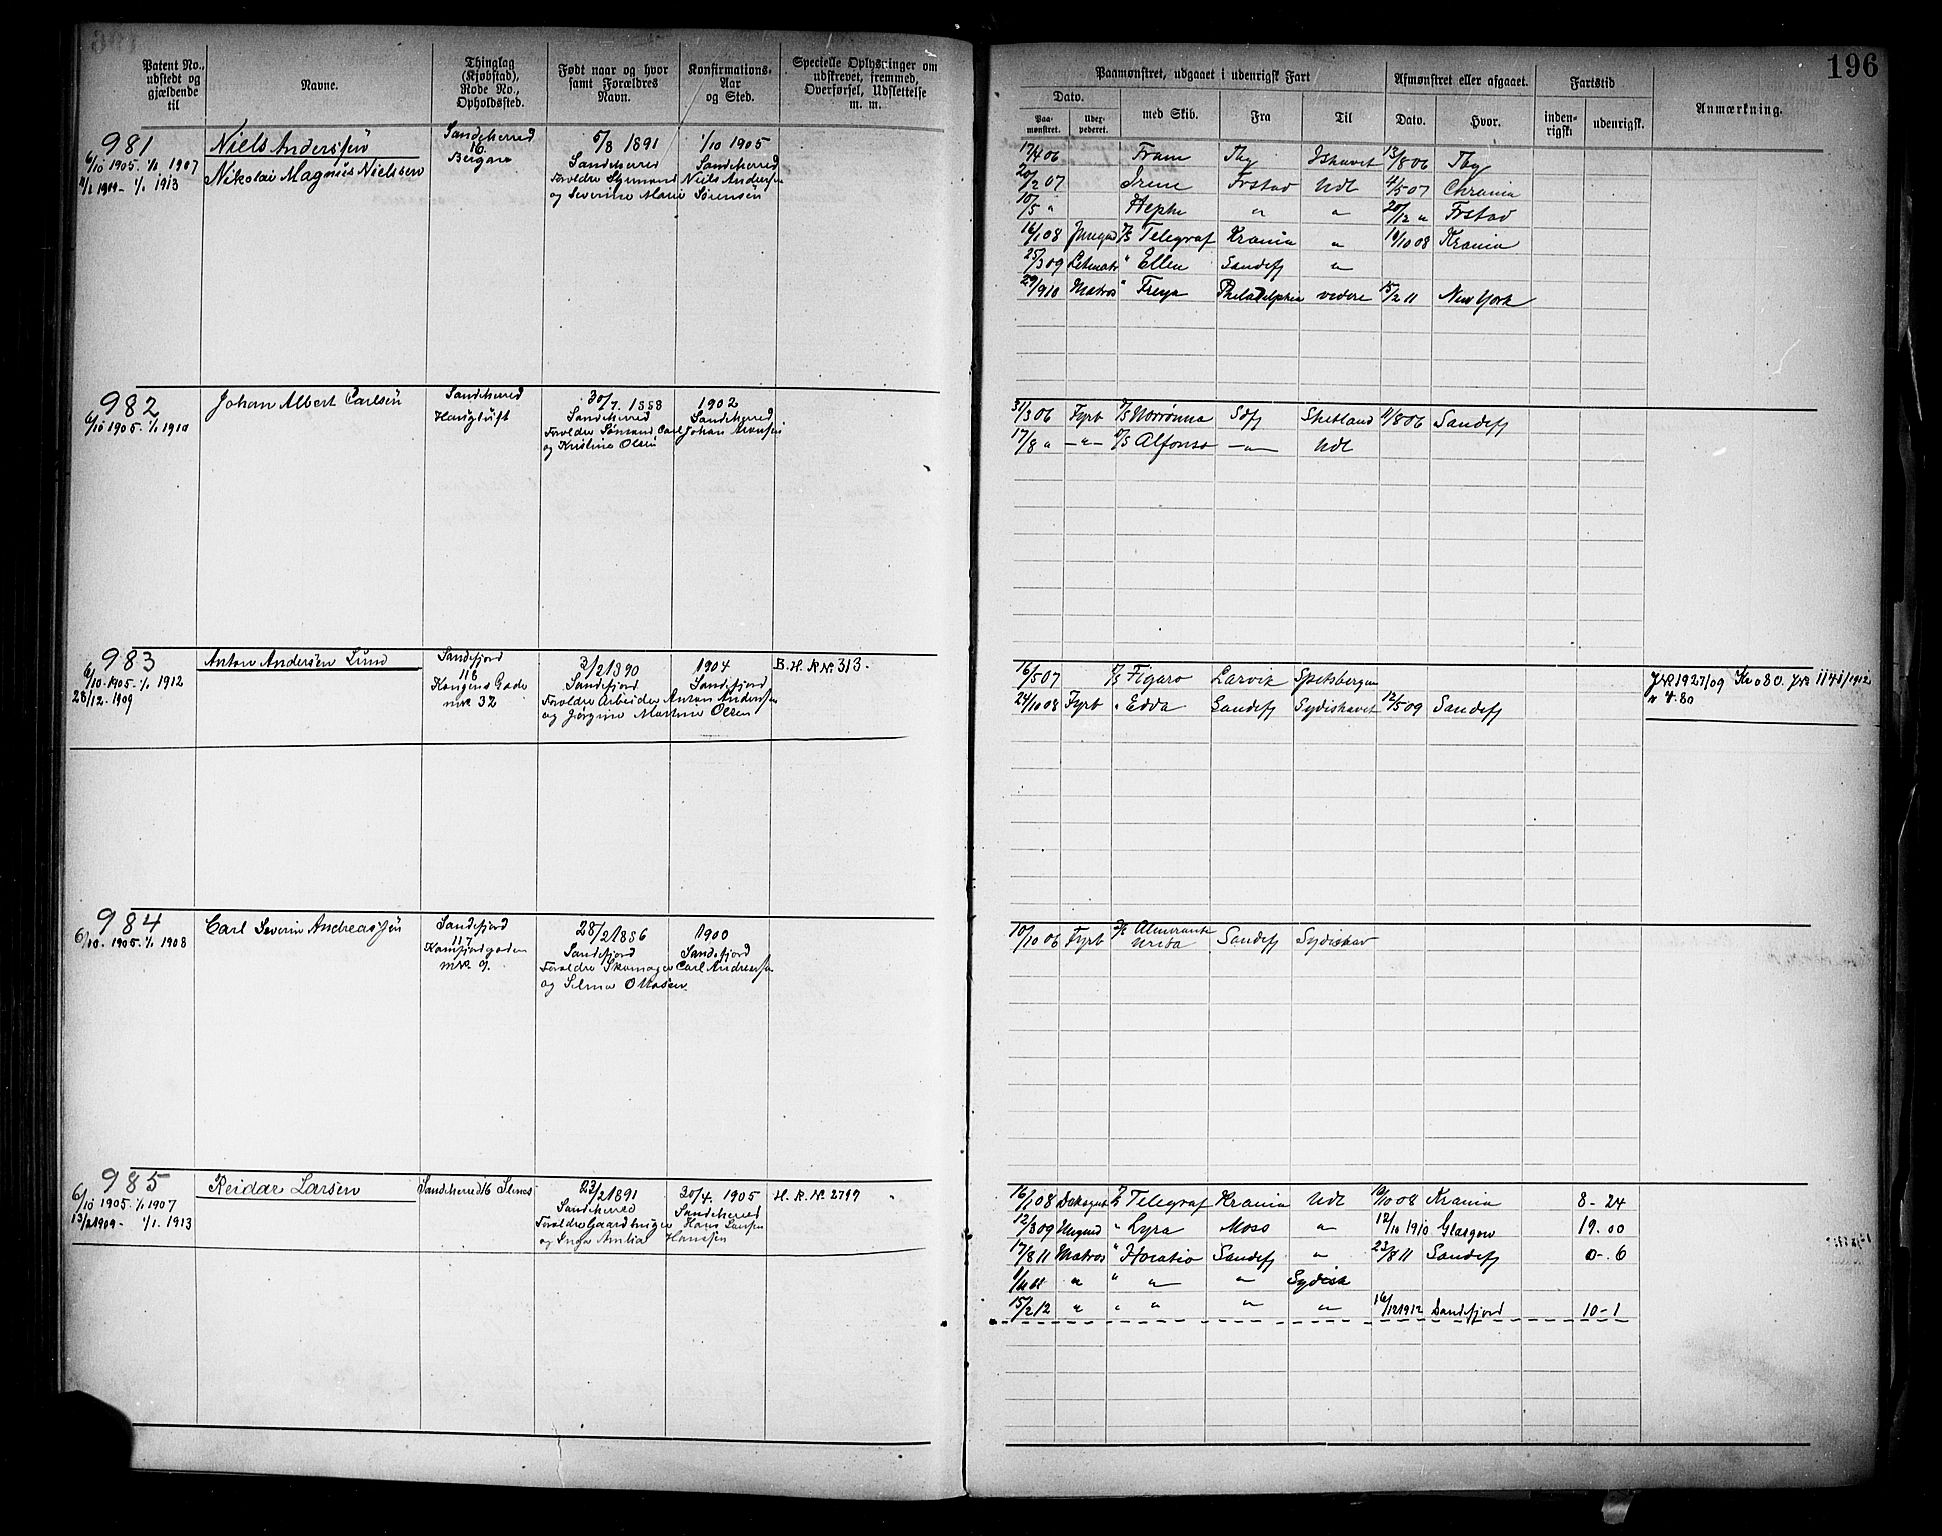 196
Patent No., udstedt og gjældende til
Navne.
Thinglag (Kjøbstad), Rode No., Opholdssted.
Født naar og hvor samt Forældres Navn.
Konfirmations-Aar og Sted.
Specielle Oplysninger om udskrevet, fremmed, Overførsel, Udslettelse m. m.
Paamønstret, udgaaet i udenrigsk Fart
Afmønstret eller afgaaet.
Fartstid
Anmærkning.
Dato.
Paa-mønstret.
med Skib.
Fra
Til
Dato.
Hvor.
inden-rigsk.
udenrigsk.
981
6/10 1905. 1/1 1907
1/1 1913
Niels Anderssen
Nikolai Magnus Nielssen
Sandeherred
16
Bergan
5/8 1891
Sandeherred
Forældre Styrmand Niels Anderssen
og Severine Marie Sørensen
1/10 1905
Sandeherred
17/4 06 Fram Tbg Ishavet 13/8 06 Tbg
20/2 07 Irene Frstad Udl 4/5 07 Chrania
10/5 " Frstad 20/12 "
16/1 08 Jungm D/S Telegraf Krania " 19/10 08 Krania
25/3 09 Letmatr " Ellen Sandefj "
29/9 10 Matros " Freya Philadelphia videre 15/2 11 New York
982
6/10 1905. 1/1 1910
Johan Albert Carlsen
Sandeherred
30/7. 1888
Sandeherred
Forældre Sømand Carl Johan
og Kristine Olsen
1902
Sandeherred
31/3 06 Fyrb D/S Norrønna Sdfj Shetland 11/8 06 Sandefj
17/8 " —"— D/S Alfonso —"— Udl
983
6/10. 1905. 1/1 1912
28/12. 1909
Anton Andersen Lund
Sandefjord
116
Kongens Gade
mrk 32
3/2 1890
Sandefjord
Forældre Arbeider Anton Anderssen
og Jørgine Martine Olsen
1904
Sandefjord
B. H. R No. 313.
16/5 07 D/S Figaro Larvik Spetsbergen
24/10 08 Fyrb " Edda Sandefj Sydishavet 12/5 09 Sandefj
JNR 1927/09 Kr 0 80. JNR 1141/1912
" 4.80
984
6/10. 1905. 1/1 1908
Carl Severin Andreassen
Sandefjord
117
mrk 9.
28/2 1886
Sandefjord
Forældre Skomager Carl Andreassen
og Selma Ottosen
1900
Sandefjord
10/10 06 Fyrb D/S Almirante Uribe Sandefj Sydishav
985
6/10 1905. 1/1 1907
13/2 1909 - 1/1. 1913
Reidar Larsen
Sandeherred 16
23/2 1891
Sandeherred
Forældre Gaardbruger Hans Larsen
og Inga Amlia Hanssen
30/4. 1905
Sandeherred
H. R. No. 2797
16/1 08 Telegraf Krania Udl 19/10 08 Krania 8 - 24
12/3 09 " Lyra Moss " 12/10 1910 Glasgow 19. 00
17/8 11 Matros " Horatio Sandefj " 23/8 11 Sandefj 0 - 6
" " " " Sydish
15/2 12 " " " " " 16/12 1912 Sandefjord 10 - 1